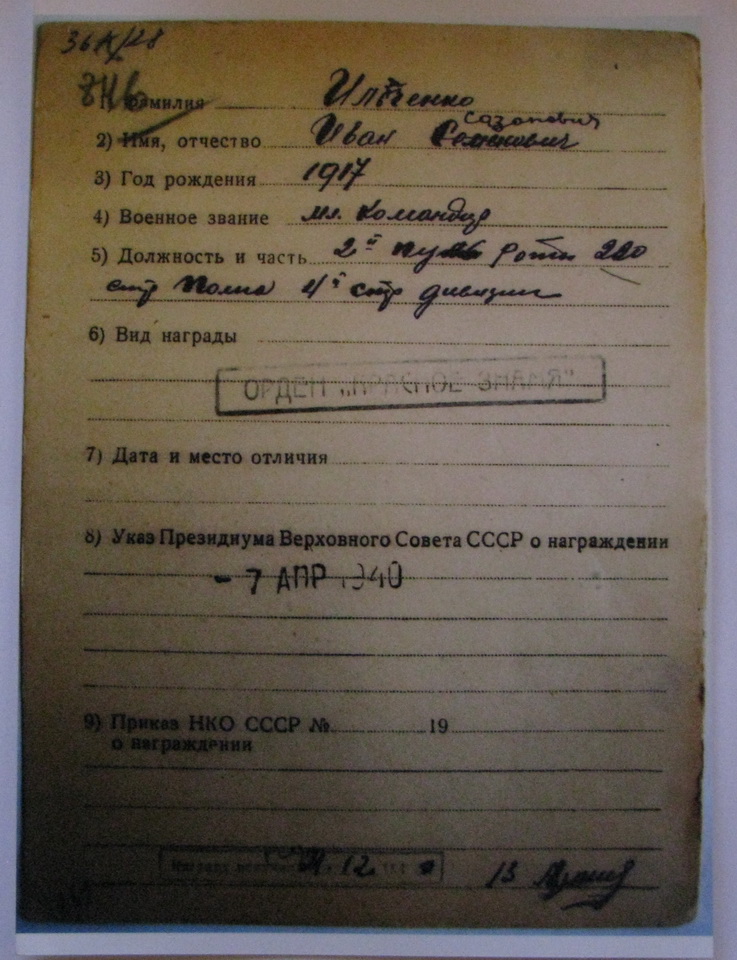 36А/28
846
1) Фамилия Ильченко
Сазонович
2) Имя, отчество Иван Семенович
3) Год рождения 1917
4) Военное звание мл. командир
5) Должность и часть 2й пуль роты 220
стр полка 4й стр дивизии
6) Вид награды
ОРДЕН „КРАСНОЕ ЗНАМЯ"
7) Дата и место отличия
8) Указ Президиума Верховного Совета СССР о награждении
- 7 АПР 1940
9) Приказ НКО СССР № 19
о награждении
12
13 Армия